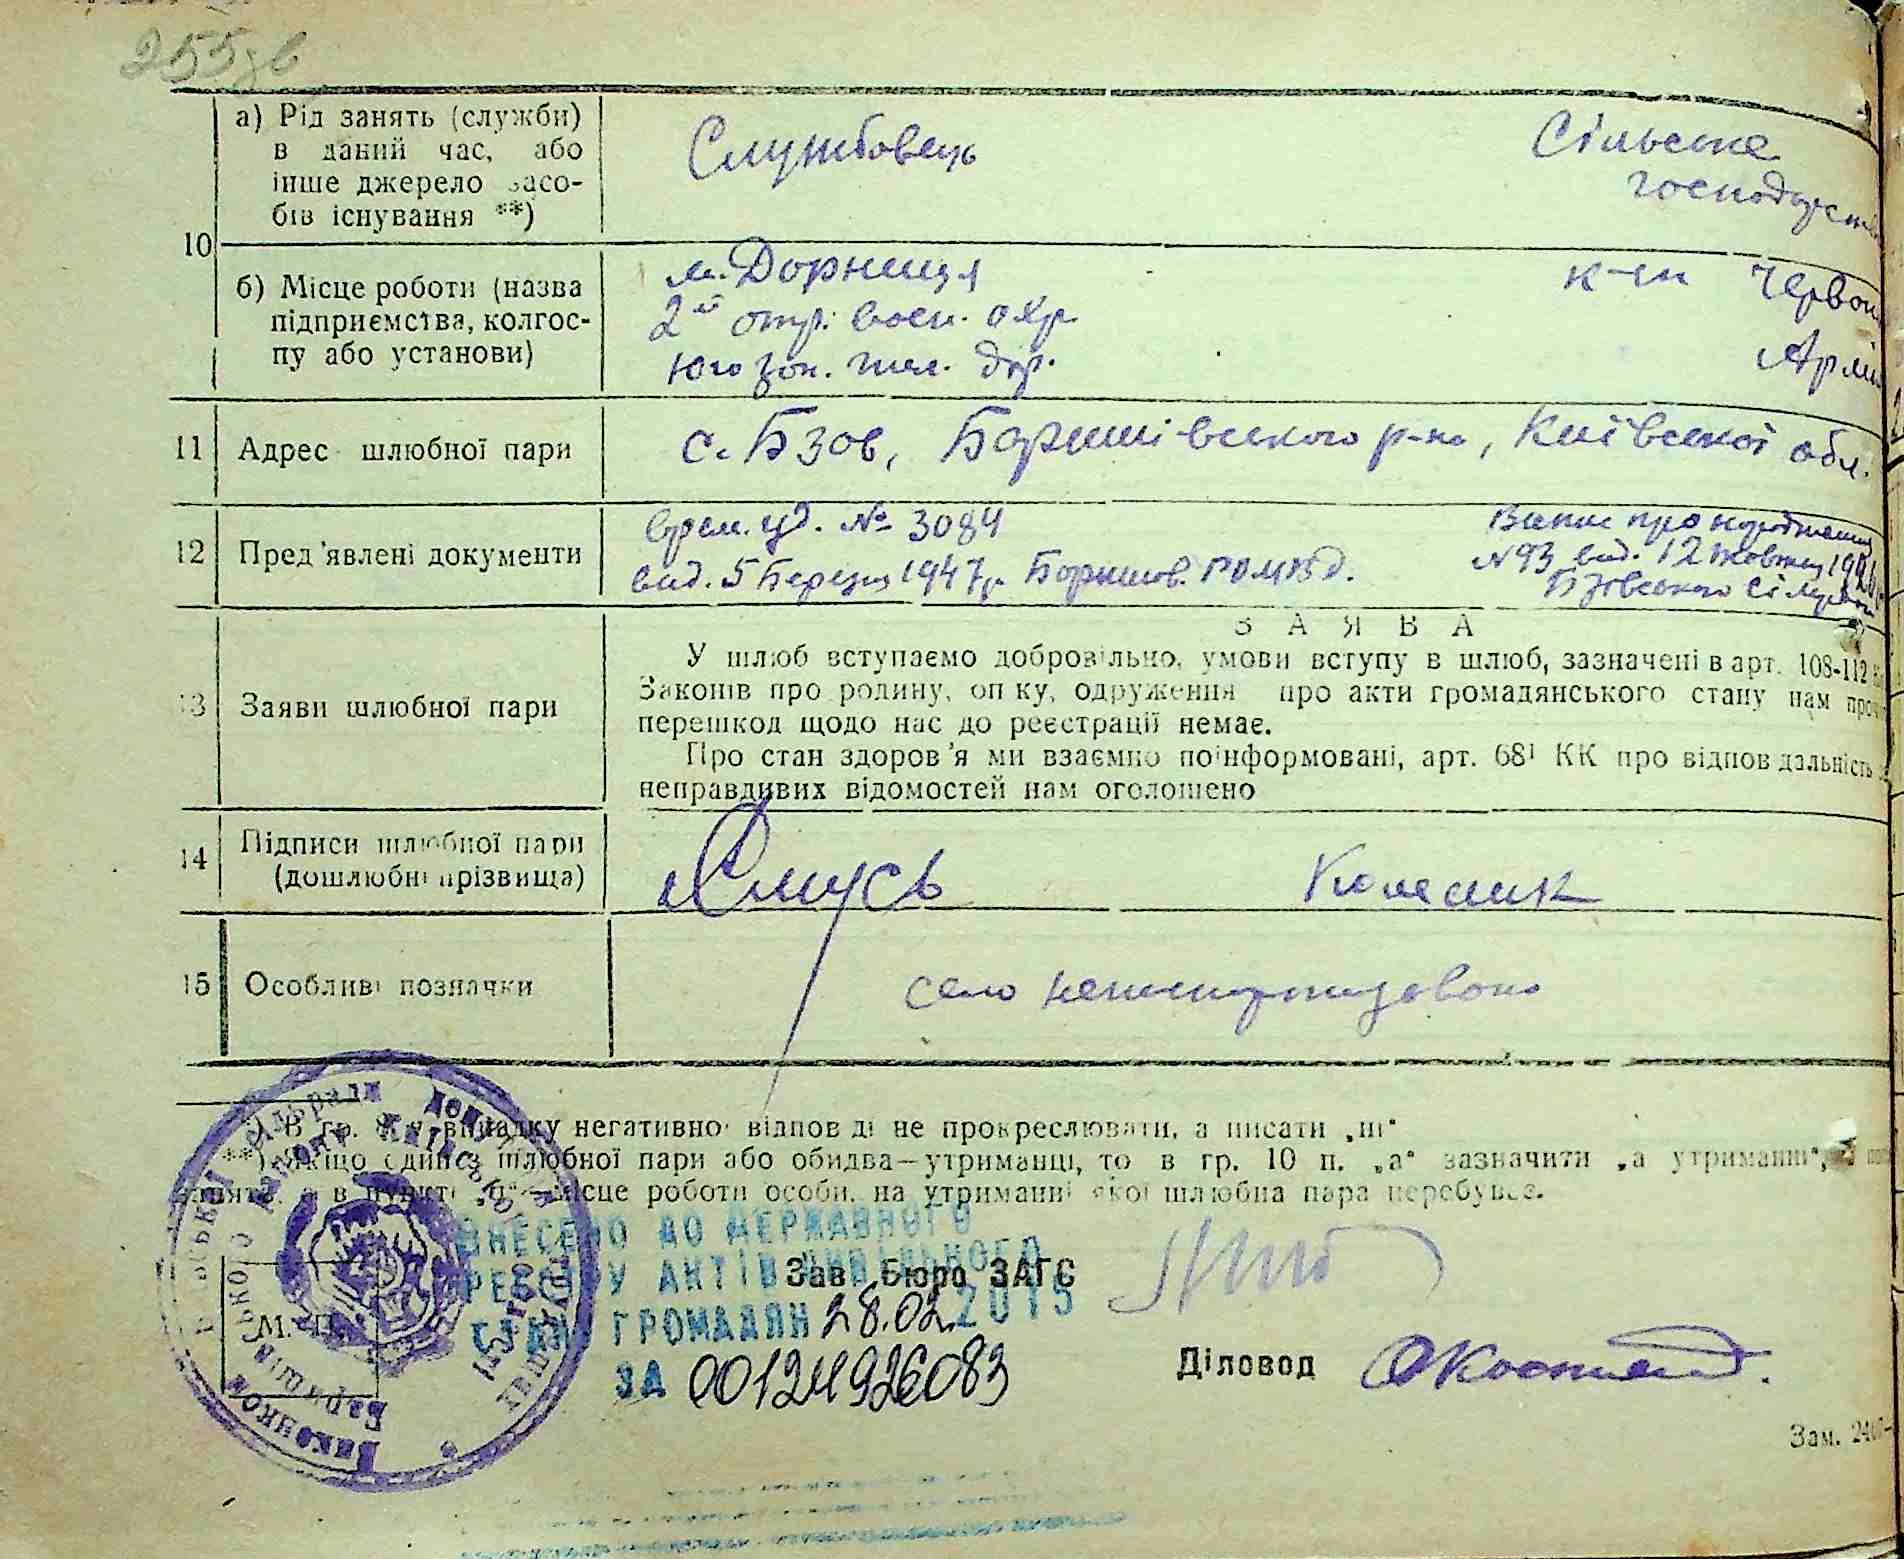 255зв
а) Рід занять (служби)
в даний час, або
інше джерело засо-
бів існування **)
Службовець
Сільське
господарств
10
б) Місце роботи (назва
підприємства, колгос-
пу або установи)
м. Дорниця
2й отр. воен. охр.
Юго зап. жел. дор.
к-гп Червон
Армі
11
Адрес шлюбної пари
с. Бзов, Боришівського р-но, Київської обл.
12
Пред'явлені документи
врем. уд. № 3084
вид. 5 Березня 1947 р. Боришов. РОМВД.
Випис про народження
№93 вид. 12 жовтня 192
Бзівською сільрадою
13
Заяви шлюбної пари
ЗАЯВА
У шлюб вступаємо добровільно, умови вступу в шлюб, зазначені в арт. 108-112
Законів про родину, опіку, одруження про акти громадянського стану нам проч
перешкод щодо нас до реєстрації немає.
Про стан здоров'я ми взаємно поінформовані, арт. 68¹ КК про відповідальність
неправдивих відомостей нам оголошено
14
Підписи шлюбної пари
(дошлюбні прізвища)
Смусь
Колесник
15
Особливі позначки
село непаспортизовано
В гр. випадку негативної відповіді не прокреслювати, а писати „ні"
**) Якщо один із шлюбної пари або обидва—утриманці, то в гр. 10 п. „а" зазначити „а утриманні",
заняття, а в пункті „б" місце роботи особи, на утриманні якої шлюбна пара перебуває.
ВНЕСЕНО ДО ДЕРЖАВНОГО
РЕЄСТРУ АКТІВ ЦИВІЛЬНОГО
СТАНУ ГРОМАДЯН 28.02.2015
ЗА 00124926083
Зав. Бюро ЗАГС
М. П.
Діловод
Виконком
сільради
району Київської
Баришівського
Зам. 246